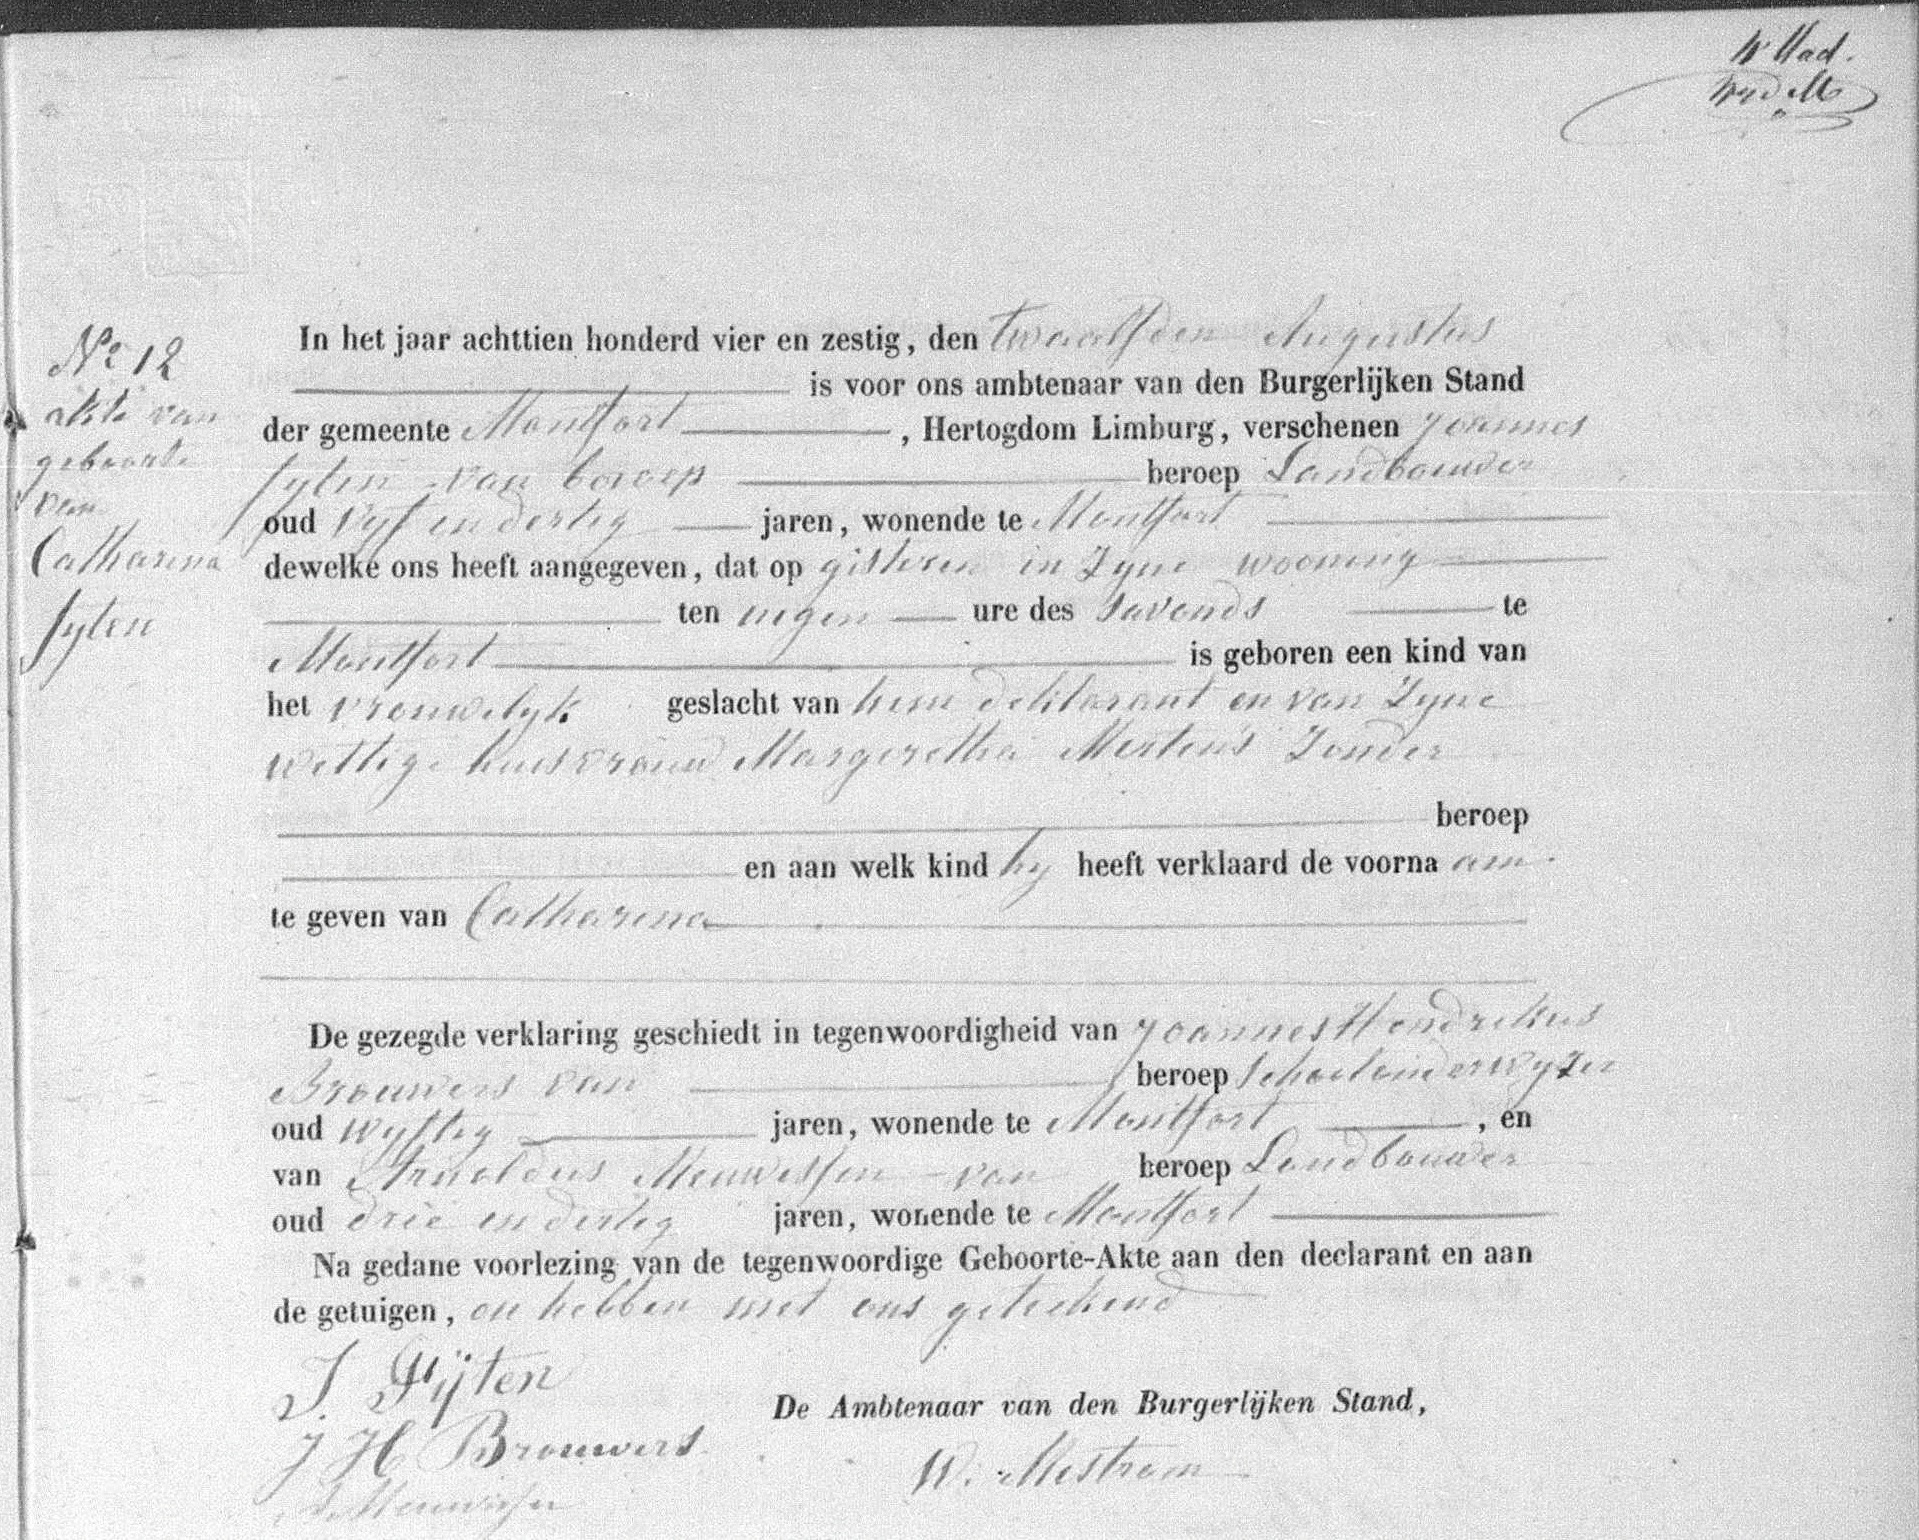 4e blad.
No 12
akte van
geboorte
van
Catharina
Fyten
In het jaar achttien honderd vier en zestig, den twaalfden Augustus
is voor ons ambtenaar van den Burgerlijken Stand
der gemeente Montfort, Hertogdom Limburg, verschenen Joannes
Fyten van beroep beroep Landbouwer
oud vyf en dertig jaren, wonende te Montfort
dewelke ons heeft aangegeven, dat op gisteren in Zyne wooning
ten negen ure des Savonds te
Montfort is geboren een kind van
het vrouwelyk geslacht van hem deklarant en van Zyne
wettige huisvrouw Margeretha Mertens Zonder
beroep
en aan welk kind hy heeft verklaard de voorna am
te geven van Catharina
De gezegde verklaring geschiedt in tegenwoordigheid van Joannes Hendrikus
Brouwers van beroep Schoolonderwyzer
oud vyftig jaren, wonende te Montfort, en
van Arnoldus Meuwissen van beroep Landbouwer
oud drie en dertig jaren, wonende te Montfort
Na gedane voorlezing van de tegenwoordige Geboorte-Akte aan den declarant en aan
de getuigen, en hebben met ons geteekend
J. Fijten
De Ambtenaar van den Burgerlijken Stand,
J H Brouwers
W. Mestrom
A Meuwissen